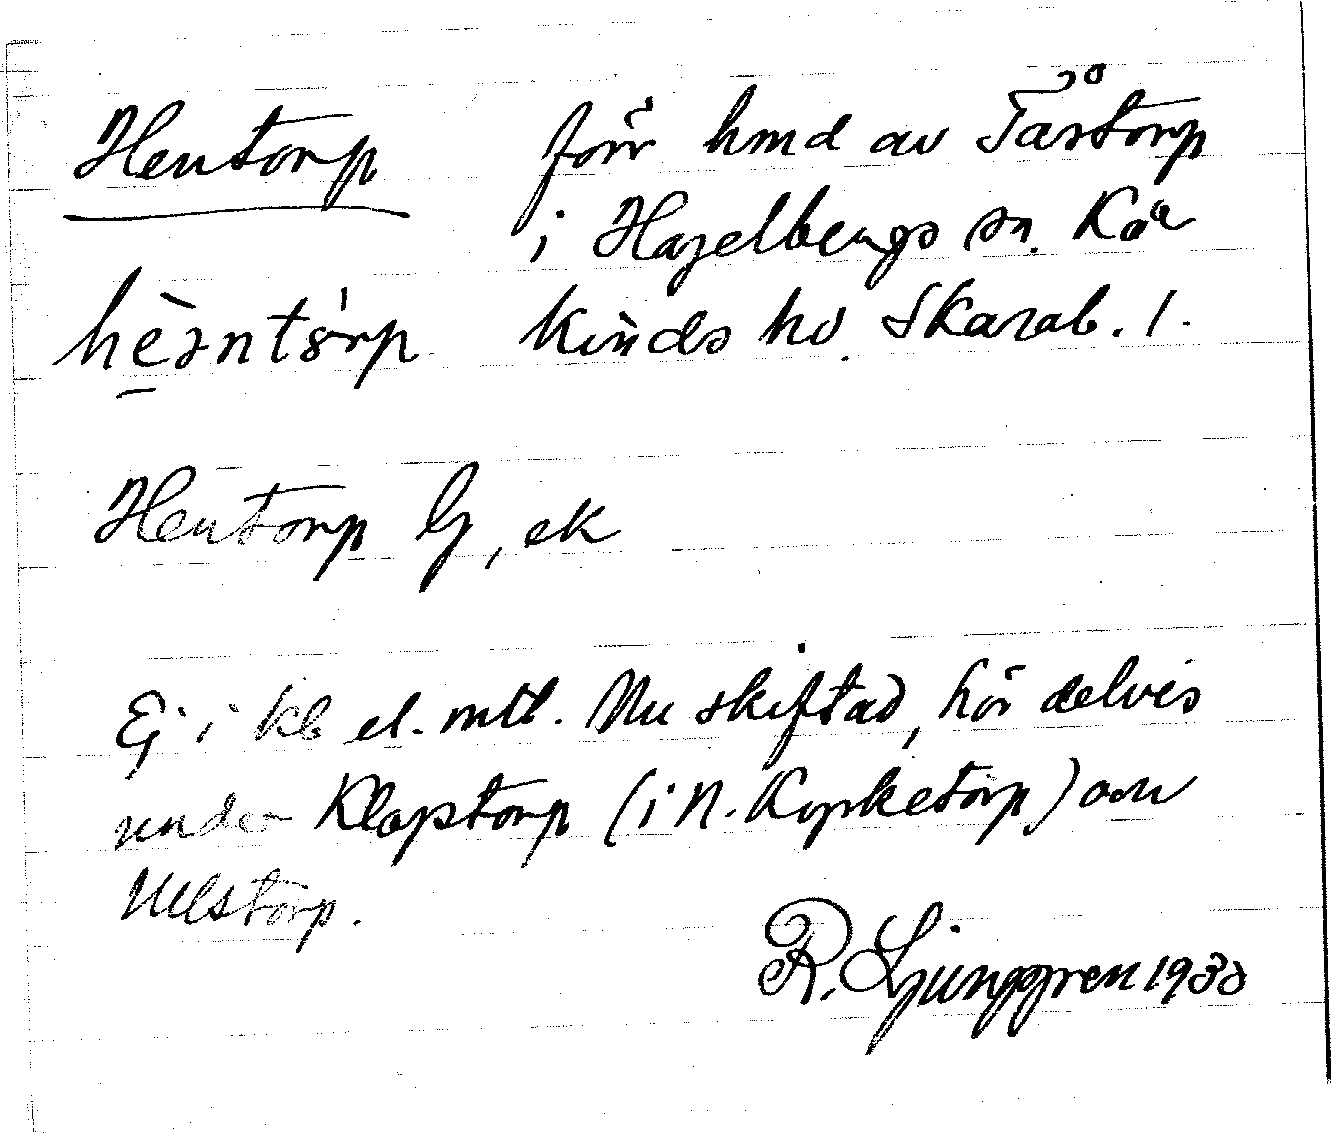 Hentorp förr hmd av Tåstorp
i Hagelbergs sn. Kå
hèəntó̤rp kinds hd. Skarab. l.
Hentorp G, ek
Ej i kb el. mtl. Nu skiftad, hör delvis
under Klapstorp (i N. Kyrketorp) och
Ulvstorp.
R. Ljunggren 1930